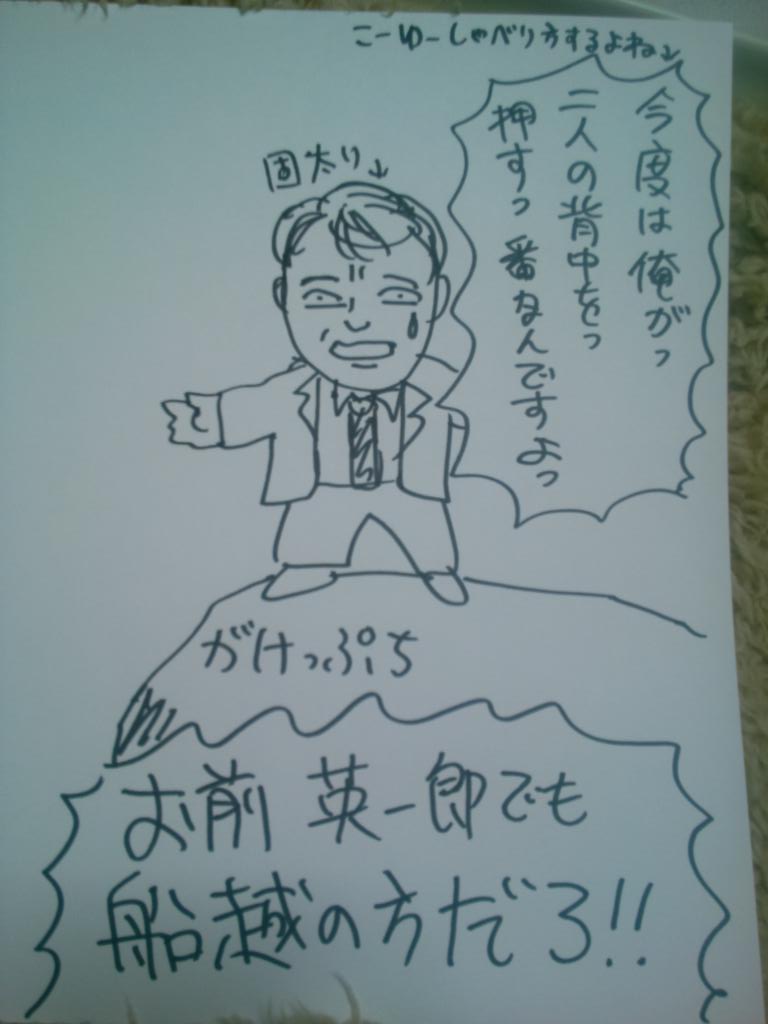 こーゆーしゃべり方するよね↓
今度は俺がっ
二人の背中をっ
押すっ番なんですよっ
固太り↓
がけっぷち
お前 英一郎でも
船越の方だろ!!